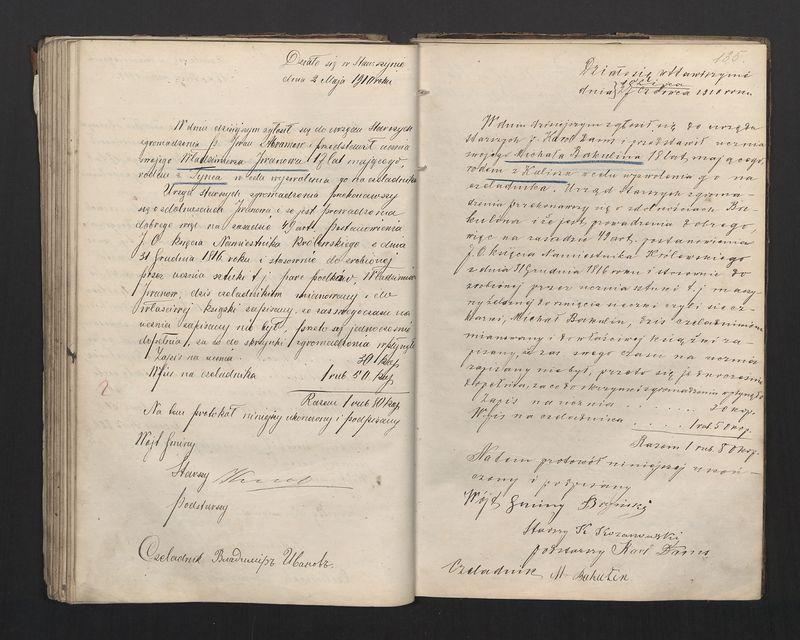 Działo się w Stawszynie
dnia 2 Maja 1910 roku
W dniu dzisiejszym zgłosił się do urzędu Starszych
zgromadzenia p. Jowa Abramow i przedstawił ucznia
swojego Władimira Iwanowa 19 lat mającego,
rodem z Tyńca w celu wyzwolenia go na czeladnika
Urząd starszych zgromadzenia przekonawszy
się o zdolnościach Iwanowa i że jest prowadzenia
dobrego więc na zasadzie 49 art. Postanowienia
J. O. księcia Namiestnika Królewskiego z dnia
31 Grudnia 1816 roku i stosownie do zrobionej
przez ucznia sztuki t j. parę podków, Władimir
Iwanow, dziś czeladnikiem mianowany i do
właściwej książki zapisany, że zaś swego czasu na
ucznia zapisany nie był, przeto się jednocześnie
dopełnia, za co do skrzynki zgromadzenia wpłynęło
Zapis na ucznia 30 kop
Wpis na czeladnika 1 rub 50 kop
2
Razem 1 rub 80 kop
Na tem protokół niniejszy ukończony i podpisany
Wójt Gminy
Starszy
Podstarszy
Czeladnik Владимiръ Ивановъ.
135.
Działo się w Stawszynie
dnia Czerwca 1910 roku.
W dniu dzisiejszym zgłosił się do urzędu
starszych p. Karol Dams i przedstawił ucznia
swojego Michała Bakulina 18 lat mającego,
rodem z Kalina w celu wyzwolenia go na
czeladnika. Urząd Starszych zgroma
dzenia przekonawszy się o zdolnościach Ba
kulina i że jest prowadzenia dobrego,
więc na zasadzie 49 art. postanowienia
J. O. księcia Namiestnika Królewskiego
z dnia 31 Grudnia 1816 roku i stosownie do
zrobionej przez ucznia sztuki t. j. maszy
nę żelazną do rznięcia sieczki czyli siecz
karni, Michał Bakulin, dziś czeladnikiem
mianowany i do właściwej książki za
pisany, że zaś swego czasu na ucznia
zapisany nie był, przeto się jednocześnie
dopełnia, za co do skrzynki zgromadzenia wpłynęło
Zapis na ucznia . . . . . . 30 kop.
Wpis na czeladnika . . . . 1 rub. 50 kop.
Razem 1 rub. 80 kop.
Na tem protokół niniejszy ukoń-
czony i podpisany
Wójt Gminy
Starszy K Kozanowski
podstarszy Karl Dams
Czeladnik M Bakulin